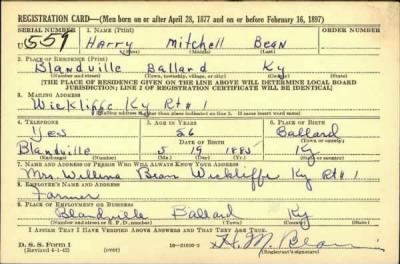 REGISTRATION CARD—(Men born on or after April 28, 1877 and on or before February 16, 1897)
SERIAL NUMBER 1. Name (Print) ORDER NUMBER
U 559 Harry Mitchell Bean
(First) (Middle) (Last)
2. Place of Residence (Print)
Blandville Ballard Ky
(Number and street) (Town, township, village, or city) (County) (State)
[THE PLACE OF RESIDENCE GIVEN ON THE LINE ABOVE WILL DETERMINE LOCAL BOARD
JURISDICTION; LINE 2 OF REGISTRATION CERTIFICATE WILL BE IDENTICAL]
3. Mailing Address
Wickliffe Ky Rt #1
[Mailing address if other than place indicated on line 2. If same insert word same]
4. Telephone 5. Age in Years 6. Place of Birth
Yes 56 Ballard
Date of Birth (Town or county)
Blandville 5 19 1885 Ky
(Exchange) (Number) (Mo.) (Day) (Yr.) (State or country)
7. Name and Address of Person Who Will Always Know Your Address
Mrs. Willena Bean Wickliffe Ky Rt #1
8. Employer's Name and Address
Farmer
9. Place of Employment or Business
Blandville Ballard Ky
(Number and street or R. F. D. number) (Town) (County) (State)
I Affirm That I Have Verified Above Answers and That They Are True.
D. S. S. Form 1 H. M. Bean
(Revised 4-1-42) (over) (Registrant's signature)